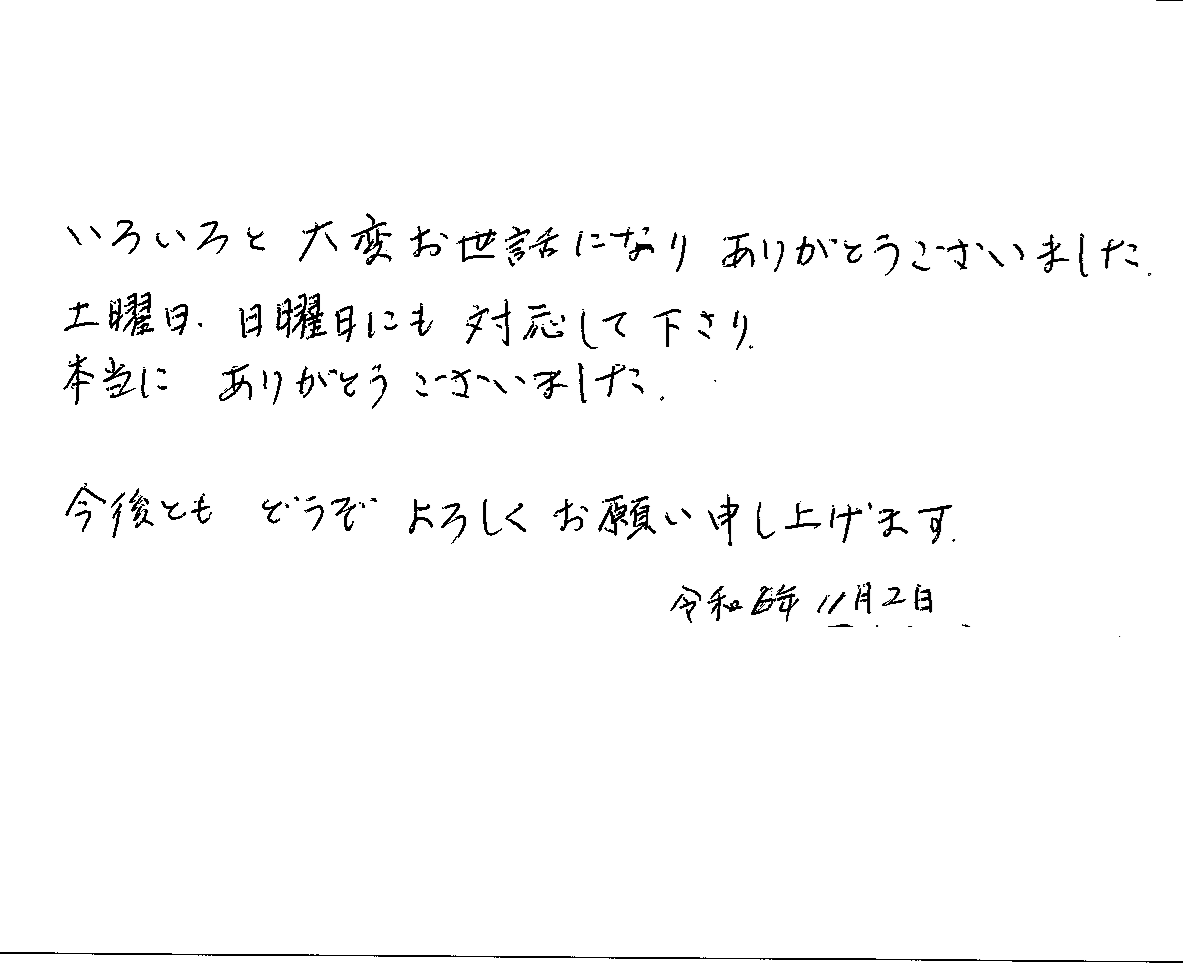 いろいろと 大変お世話になり ありがとうございました.
土曜日. 日曜日にも 対応して下さり.
本当に ありがとうございました.
今後とも どうぞ よろしく お願い申し上げます.
令和6年 11月2日